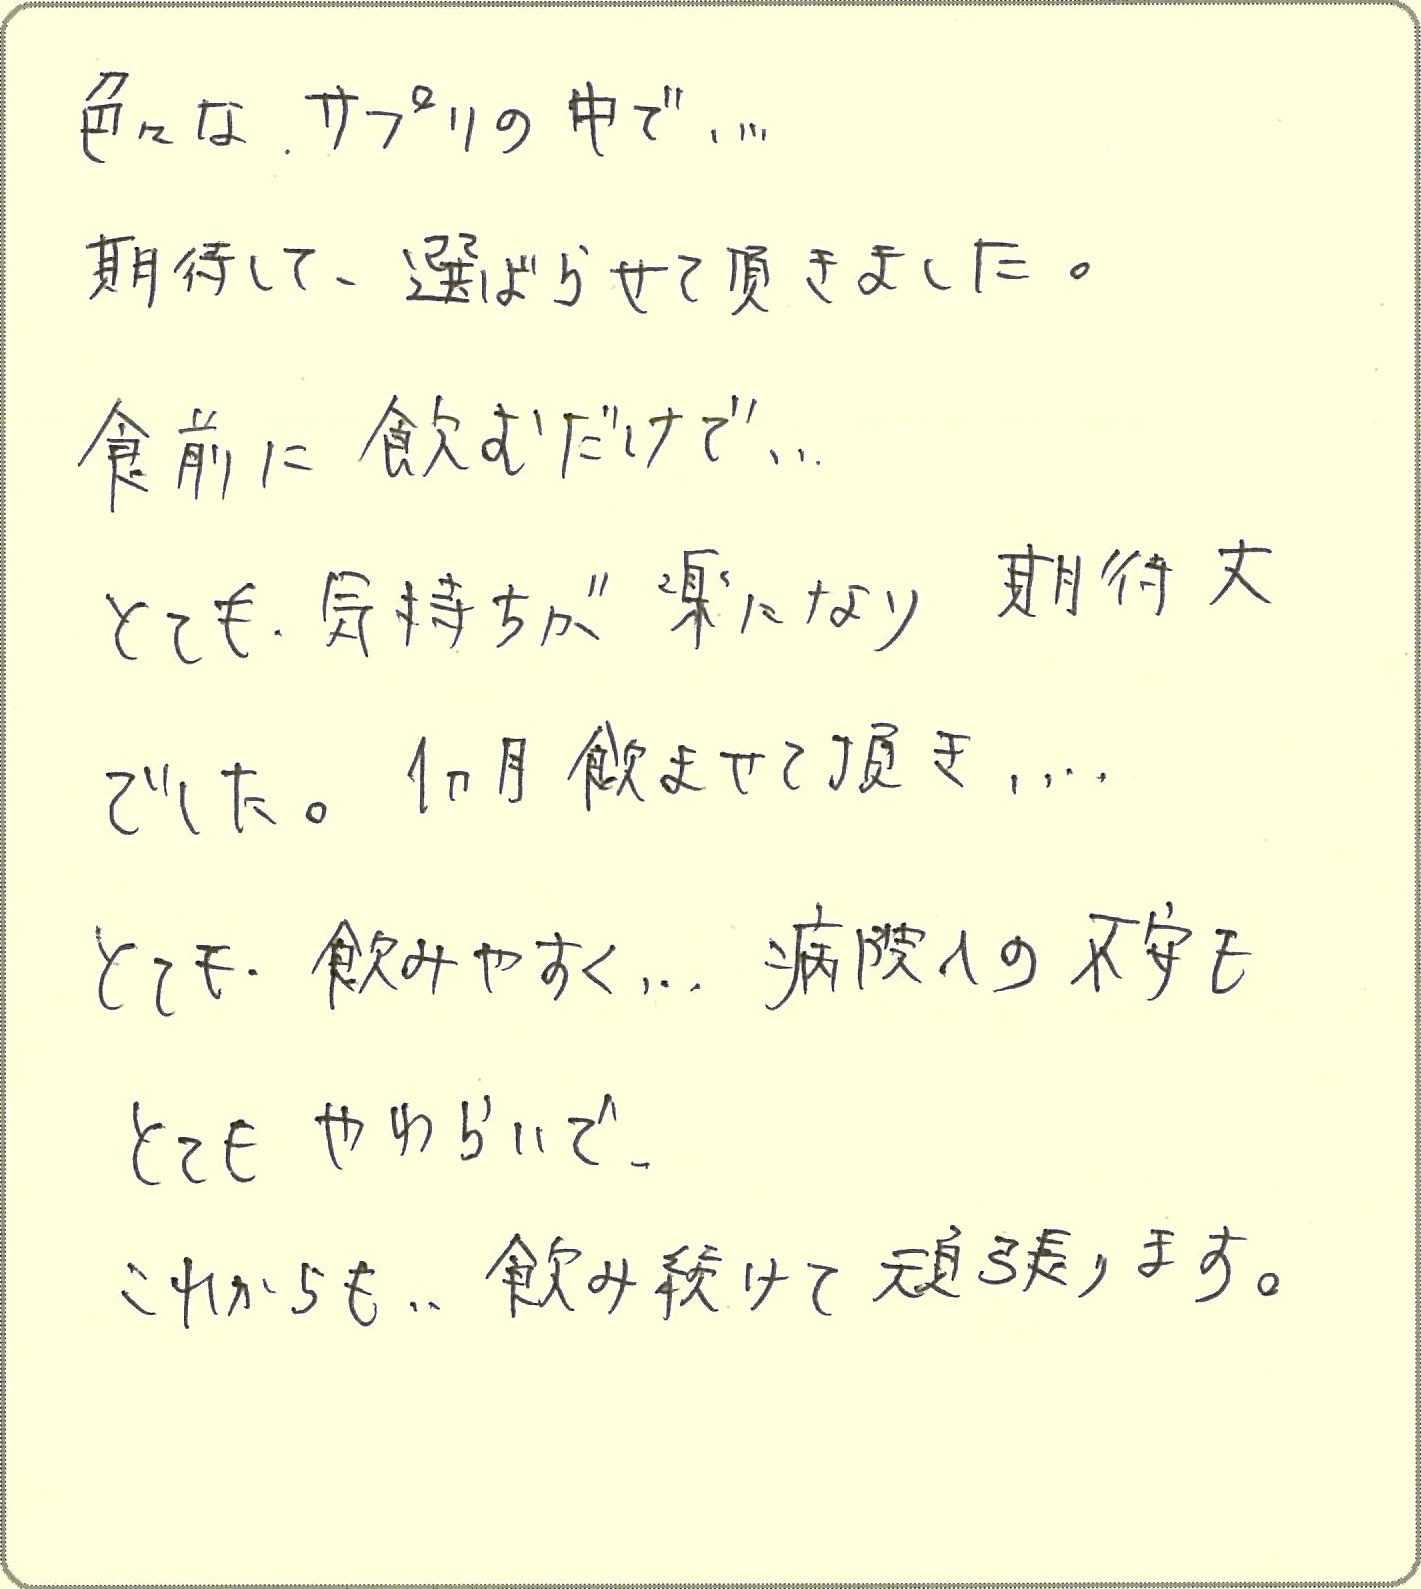 色々な.サプリの中で....
期待して、選ばらせて頂きました。
食前に飲むだけで...
とても.気持ちが楽になり 期待大
でした。1ヵ月飲ませて頂き....
とても.飲みやすく... 病院への不安も
とてもやわらいで、
これからも..飲み続けて頑張ります。